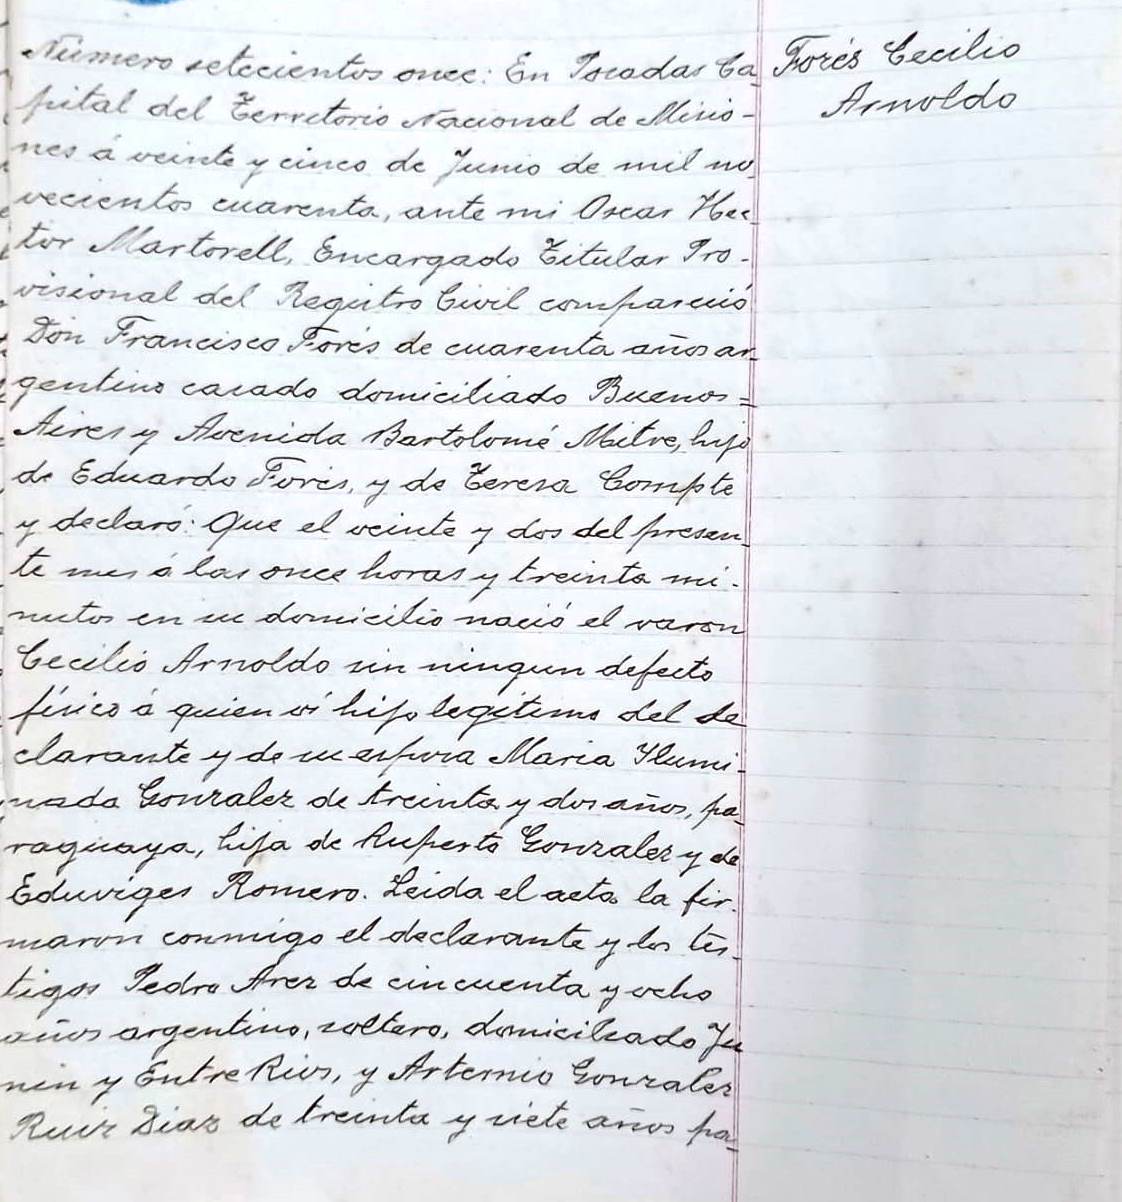 Número setecientos once: En Posadas Ca
pital del Territorio Nacional de Misio-
nes á veinte y cinco de Junio de mil no
vecientos cuarenta, ante mi Oscar Hec
tor Martorell, Encargado Titular Pro-
visional del Registro Civil compareció
Don Francisco Forés de cuarenta años ar
gentino casado domiciliado Buenos=
Aires y Avenida Bartolomé Mitre, hijo
de Eduardo Forés, y de Teresa Compte
y declaró: Que el veinte y dos del presen
te mes á las once horas y treinta mi-
nutos en su domicilio nació el varon
Cecilio Arnoldo sin ningun defecto
físico á quien ví hijo legítimo del de
clarante y de su esposa Maria Ylumi-
nada Gonzalez de treinta y dos años, pa
raguaya, hija de Ruperto Gonzalez y de
Eduviges Romero. Leida el acta la fir-
maron conmigo el declarante y los tes-
tigos Pedro Arez de cincuenta y ocho
años argentino, soltero, domiciliado Ju
nin y Entre Rios, y Artemio Gonzalez
Ruiz Diaz de treinta y siete años pa
Forés Cecilio
Arnoldo